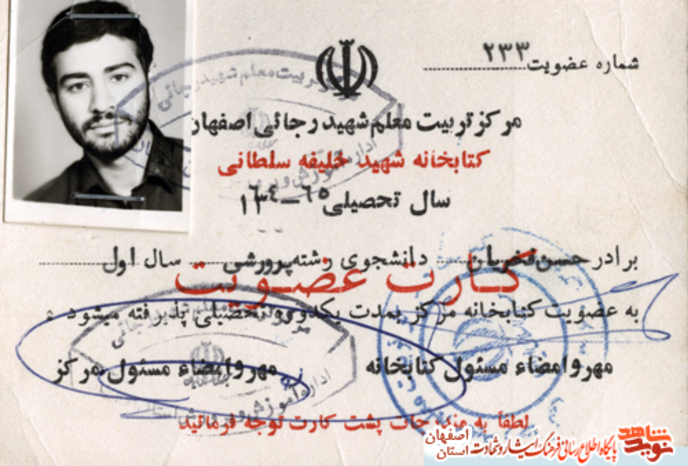 شماره عضویت ۲۳۳
مرکز تربیت معلم شهید رجائی اصفهان
کتابخانه شهید خلیفه سلطانی
سال تحصیلی ۶۵-۱۳۶۴
برادر حسن دانشجوی رشته پرورشی سال اول
کارت عضویت
به عضویت کتابخانه مرکز بمدت یکدوره تحصیلی پذیرفته میشود.
مهر و امضاء مسئول کتابخانه مهر و امضاء مسئول مرکز
لطفاً به مندرجات پشت کارت توجه فرمائید
نوید شاهد
پایگاه اطلاع رسانی فرهنگ ایثار و شهادت
استان اصفهان